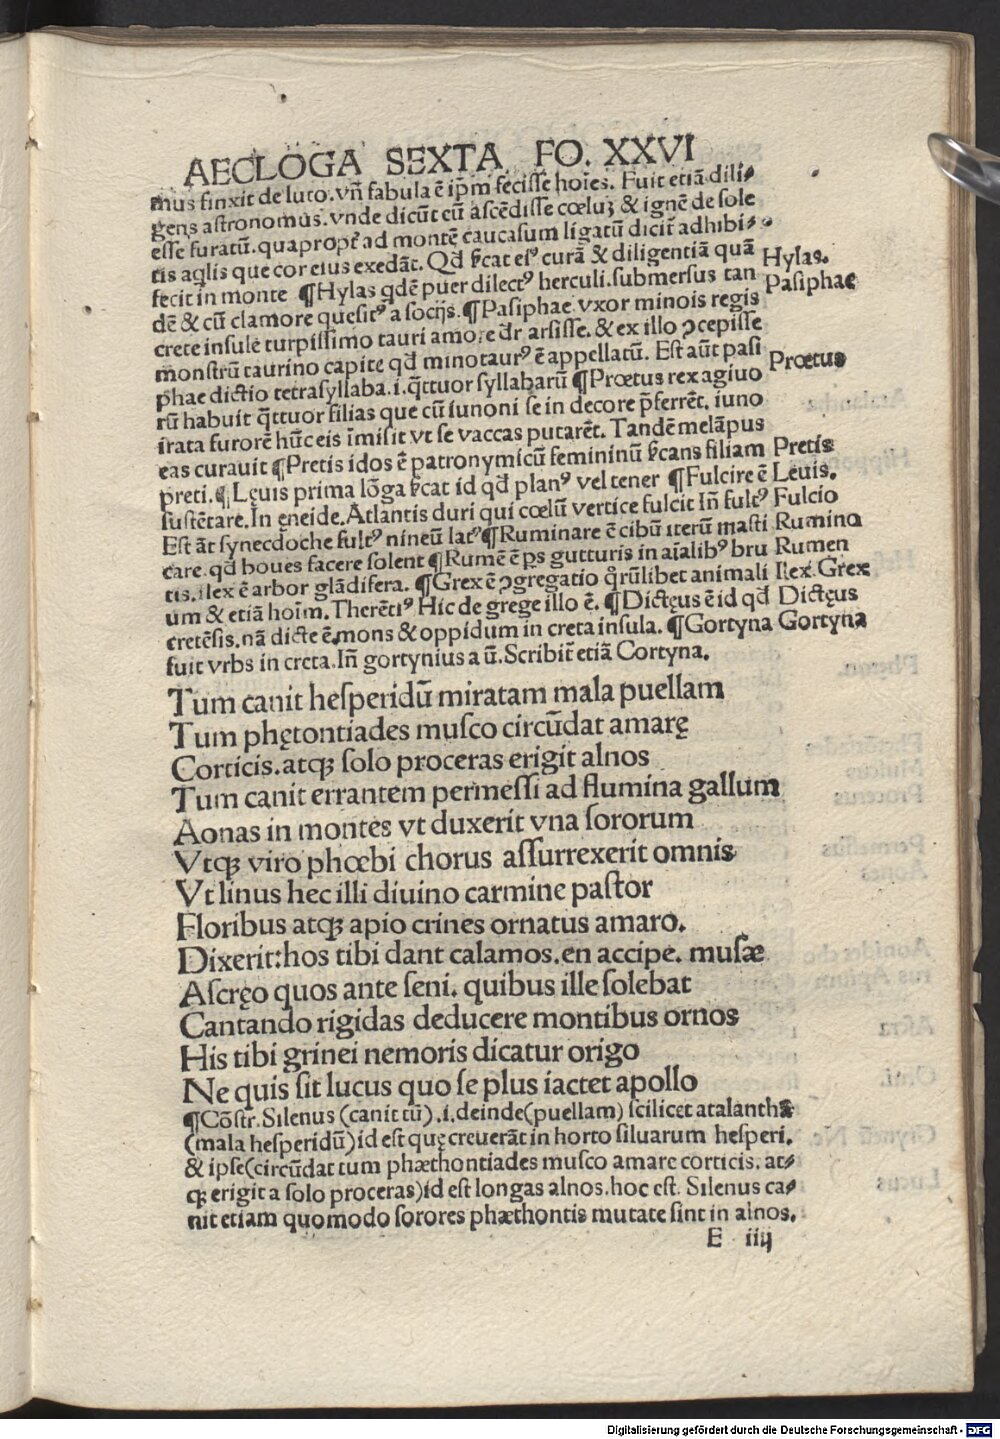 AECLOGA SEXTA FO. XXVI
mus finxit de luto. vñ fabula ē ip̄m fecisse hoīes. Fuit etiā dili-
gens astronomus. vnde dicūt cū ascēdisse cœluȝ & ignē de sole
esse furatū. quapropt̄ ad montē caucasum ligatū dicit̄ adhibi-
tis aq̄lis que cor eius exedāt. Qđ ſcat eiꝰ curā & diligentiā quā
fecit in monte ¶Hylas qdē puer dilectꝰ herculi. submersus tan Hylas.
dē & cū clamore quesitꝰ a socijs. ¶Pasiphae vxor minois regis Pasiphae
crete insule turpissimo tauri amore đr arsisse. & ex illo ↄcepisse
monstrū taurino capite qđ minotaurꝰ ē appellatū. Est aūt pasi
phae dictio tetrasyllaba. i. q̄ttuor syllabarū ¶Prœtus rex agiuo Prœtus
rū habuit q̄ttuor filias que cū iunoni se in decore p̄ferrēt. iuno
irata furorē hūc eis īmisit vt se vaccas putarēt. Tandē melāpus
eas curauit ¶Pretis idos ē patronymicū femininū ſcans filiam Pretis
preti. ¶Lęuis prima lōga ſcat id qđ planꝰ vel tener ¶Fulcire ē Leuis.
sustētare. In ęneide. Atlantis duri qui cœlū vertice fulcit Iñ fultꝰ Fulcio
Est āt synecdoche fultꝰ nineū latꝰ ¶Ruminare ē cibū iterū masti Rumino
care. qđ boues facere solent ¶Rumē ē ꝑs gutturis in aīalibꝰ bru Rumen
tis. ilex ē arbor glādifera. ¶Grex ē ↄgregatio q̊rūlibet animali Ilex. Grex
um & etiā hoīm. Therētiꝰ Hic de grege illo ē. ¶Dictęus ē id qđ Dictęus
cretēsis. nā dicte ē mons & oppidum in creta insula. ¶Gortyna Gortyna
fuit vrbs in creta. Iñ gortynius a ū. Scribit̄ etiā Cortyna.
Tum canit hesperidū miratam mala puellam
Tum phętontiades musco circūdat amarę
Corticis. atqȝ solo proceras erigit alnos
Tum canit errantem permessi ad flumina gallum
Aonas in montes vt duxerit vna sororum
Vtqȝ viro phœbi chorus assurrexerit omnis
Vt linus hec illi diuino carmine pastor
Floribus atqȝ apio crines ornatus amaro.
Dixerit: hos tibi dant calamos. en accipe. musæ
Ascręo quos ante seni. quibus ille solebat
Cantando rigidas deducere montibus ornos
His tibi grinei nemoris dicatur origo
Ne quis sit lucus quo se plus iactet apollo
¶Cōstr. Silenus (canit tū). i. deinde (puellam) scilicet atalantha
(mala hesperidū) id est quę creuerāt in horto siluarum hesperi.
& ipse (circūdat tum phæthontiades musco amare corticis. at-
qȝ erigit a solo proceras) id est longas alnos. hoc est. Silenus ca-
nit etiam quomodo sorores phæthontis mutate sint in alnos.
E iiij
Digitalisierung gefördert durch die Deutsche Forschungsgemeinschaft - DFG